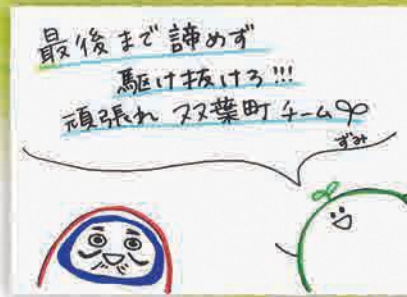 最後まで諦めず
駆け抜けろ!!!
頑張れ 双葉町チーム
ずみ